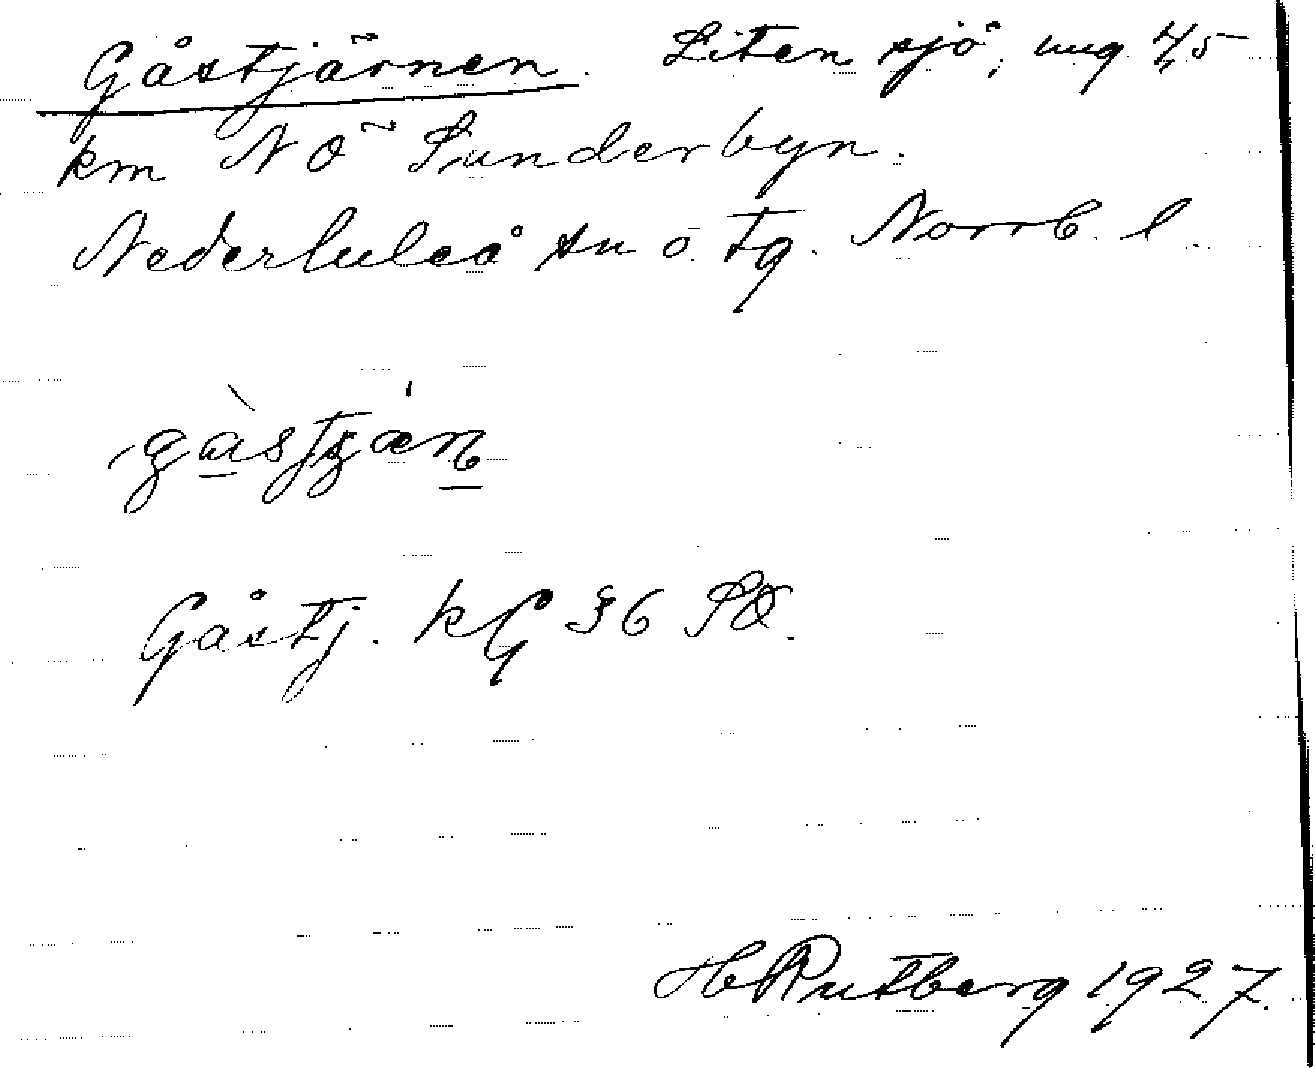 Gåstjärnen. Liten sjö, ung 4,5
km NÖ Sunderbyn.
Nederluleå sn o. tg. Norrb. l.
Gåstj. kG 36 SO.
H Rutberg 1927.